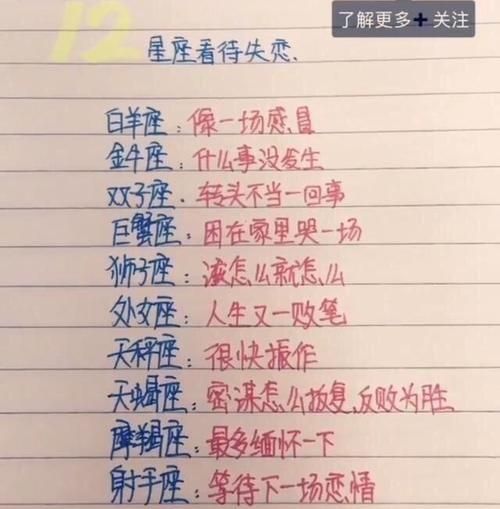 了解更多+关注
12
星座看待失恋.
白羊座：像一场感冒
金牛座：什么事没发生
双子座．转头不当一回事
巨蟹座：困在家里哭一场
狮子座：该怎么就怎么
处女座：人生又一败笔
天秤座：很快振作
天蝎座：密谋怎么报复、反败为胜
摩羯座：最多缅怀一下
射手座：等待下一场恋情